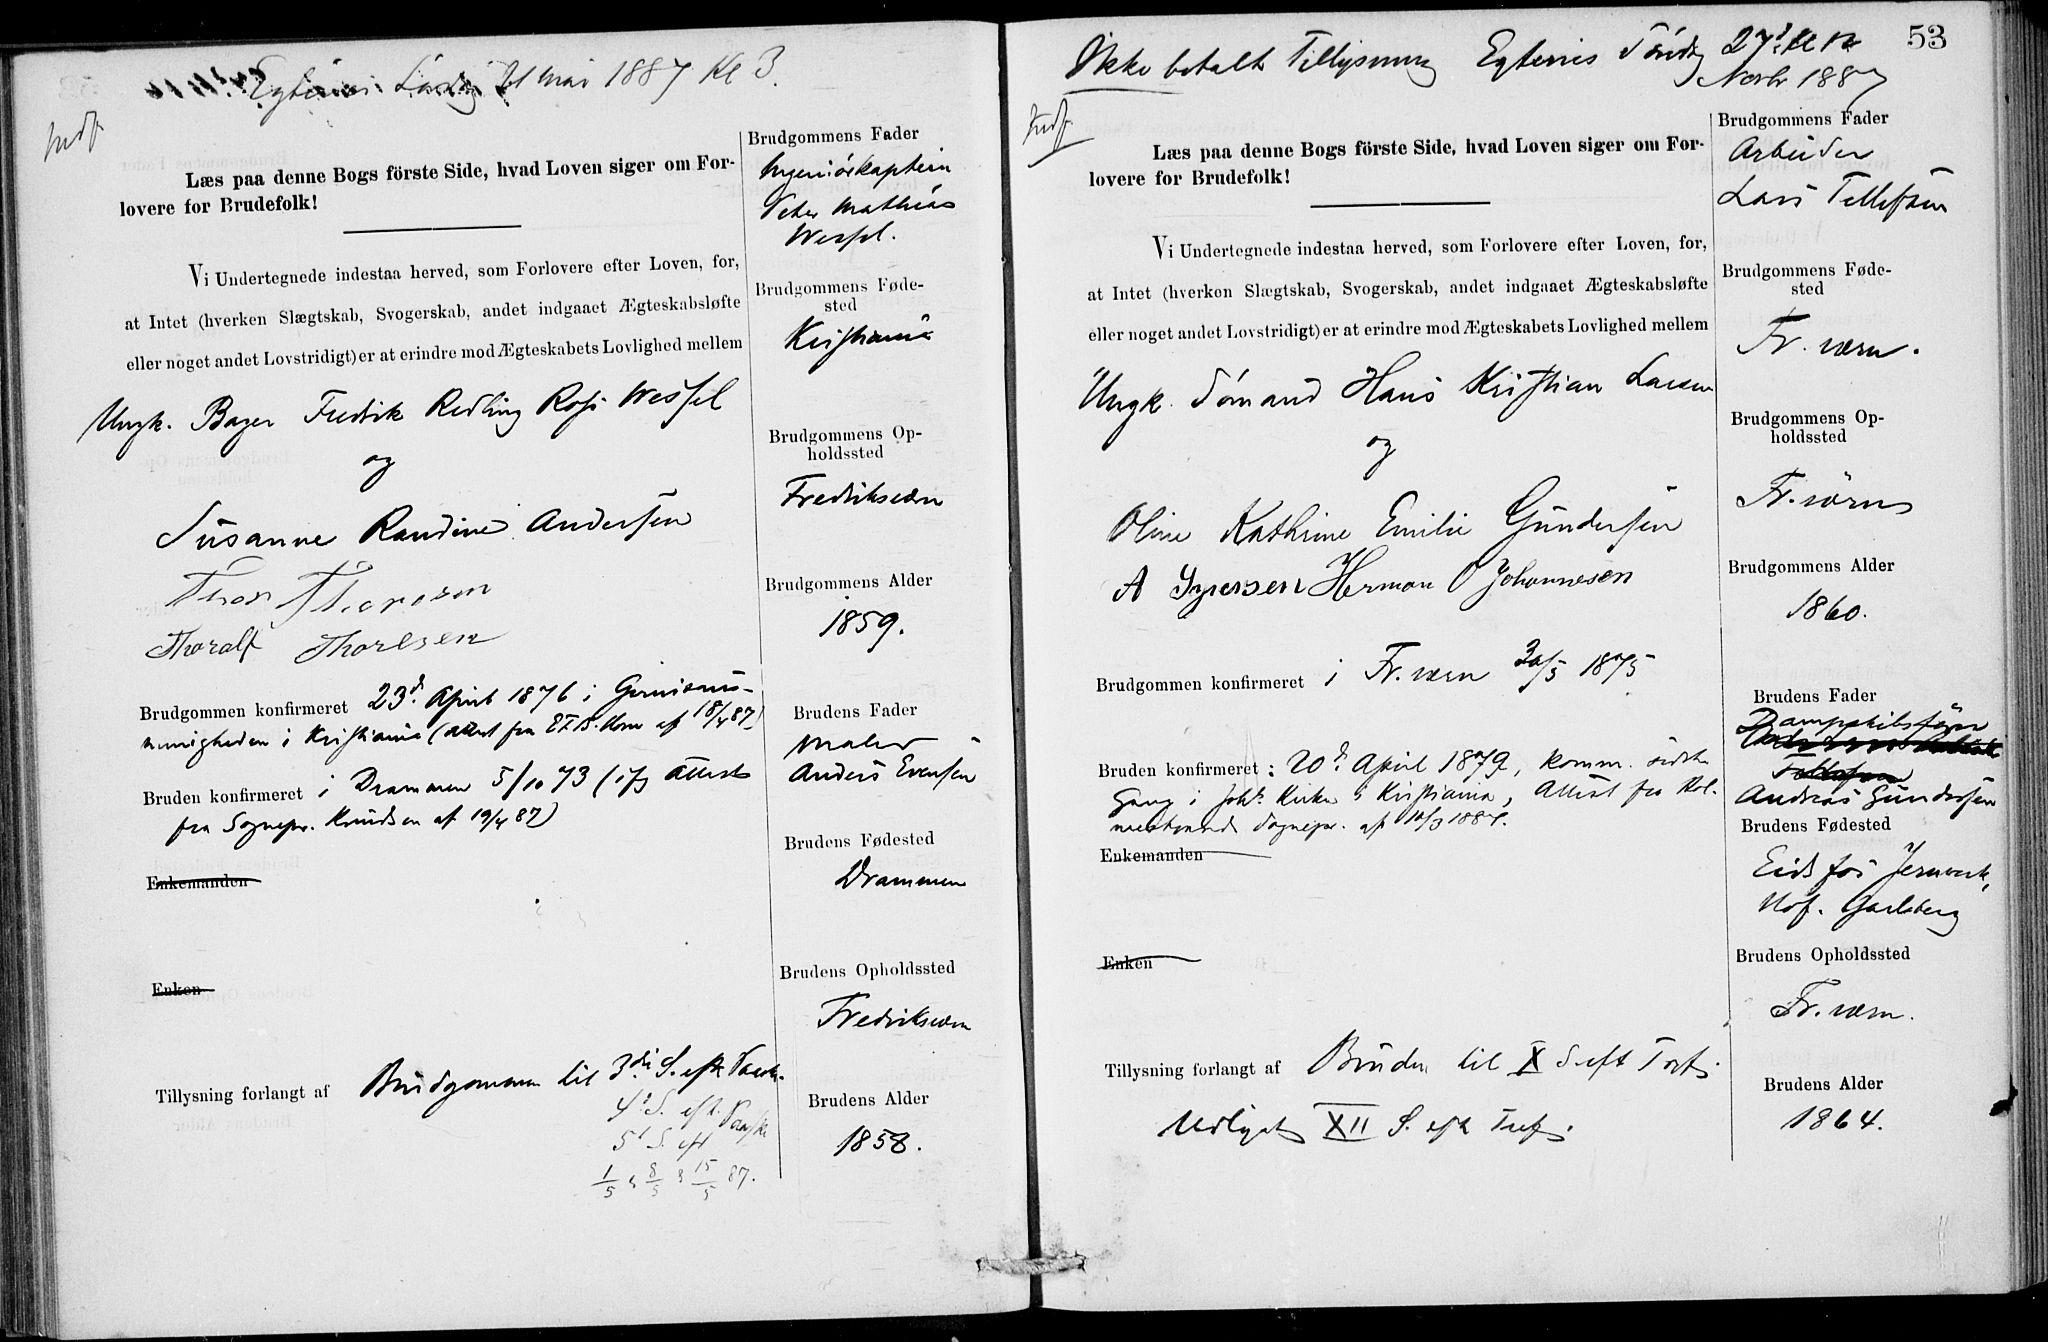 Egtevies Lørdag 21 Mai 1887 Kl 3.
Indf.
Læs paa denne Bogs förste Side, hvad Loven siger om For-
lovere for Brudefolk!
Vi Undertegnede indestaa herved, som Forlovere efter Loven, for,
at Intet (hverken Slægtskab, Svogerskab, andet indgaaet Ægteskabsløfte
eller noget andet Lovstridigt) er at erindre mod Ægteskabets Lovlighed mellem
Ungk. Bager Fredrik Redling Ross Wessel
og
Susanne Randine Andersen
Thorsen
Thoralf Thoresen
Brudgommen konfirmeret 23d April 1876 i Garnisons-
menigheden i Kristiania (Attest fra af 18/4 87)
Bruden konfirmeret i Drammen 5/10 73 (if Attest
fra Sognepr. Knudsen af 19/4 87)
Enkemanden
Enken
Tillysning forlangt af Brudgommen til 3die S. eft Paaske.
4d S. eft. Paaske
5t S. eft
1/5 8/5 15/5 87.
Brudgommens Fader
Ingeniörkaptein
Peter Mathias
Wessel.
Brudgommens Føde-
sted
Kristiania
Brudgommens Op-
holdssted
Fredriksværn
Brudgommens Alder
1859.
Brudens Fader
Maler
Anders Evensen
Brudens Fødested
Drammen
Brudens Opholdssted
Fredriksværn
Brudens Alder
1858.
53
Ikke betalt Tillysning Egtevies Söndg 27d Kl
Novbr 1887
Indf.
Læs paa denne Bogs förste Side, hvad Loven siger om For-
lovere for Brudefolk!
Vi Undertegnede indestaa herved, som Forlovere efter Loven, for,
at Intet (hverken Slægtskab, Svogerskab, andet indgaaet Ægteskabsløfte
eller noget andet Lovstridigt) er at erindre mod Ægteskabets Lovlighed mellem
Ungk. Sömand Hans Kristian Larsen
og
Oline Kathrine Emilie Gundersen
A Syversen Herman O Johannesen
Brudgommen konfirmeret i Fr. værn 30/5 1875
Bruden konfirmeret : 20d April 1879, komm. sidste
Gang i Joh. Kirke i Kristiania, Attest fra Hol-
mestrands Sognepr. af 10/3 1887.
Enkemanden
Enken
Tillysning forlangt af Bruden til X S eft Tref.
Udlyst XII S. eft Tref.
Brudgommens Fader
Arbeider
Lars Tellefsen
Brudgommens Føde-
sted
Fr. værn.
Brudgommens Op-
holdssted
Fr. værn
Brudgommens Alder
1860.
Brudens Fader
Dampskibsfører
Tellefsen
Andreas Gundersen
Brudens Fødested
Eidsfos Jernværk,
Hof. Jarlsberg
Brudens Opholdssted
Fr. værn.
Brudens Alder
1864.